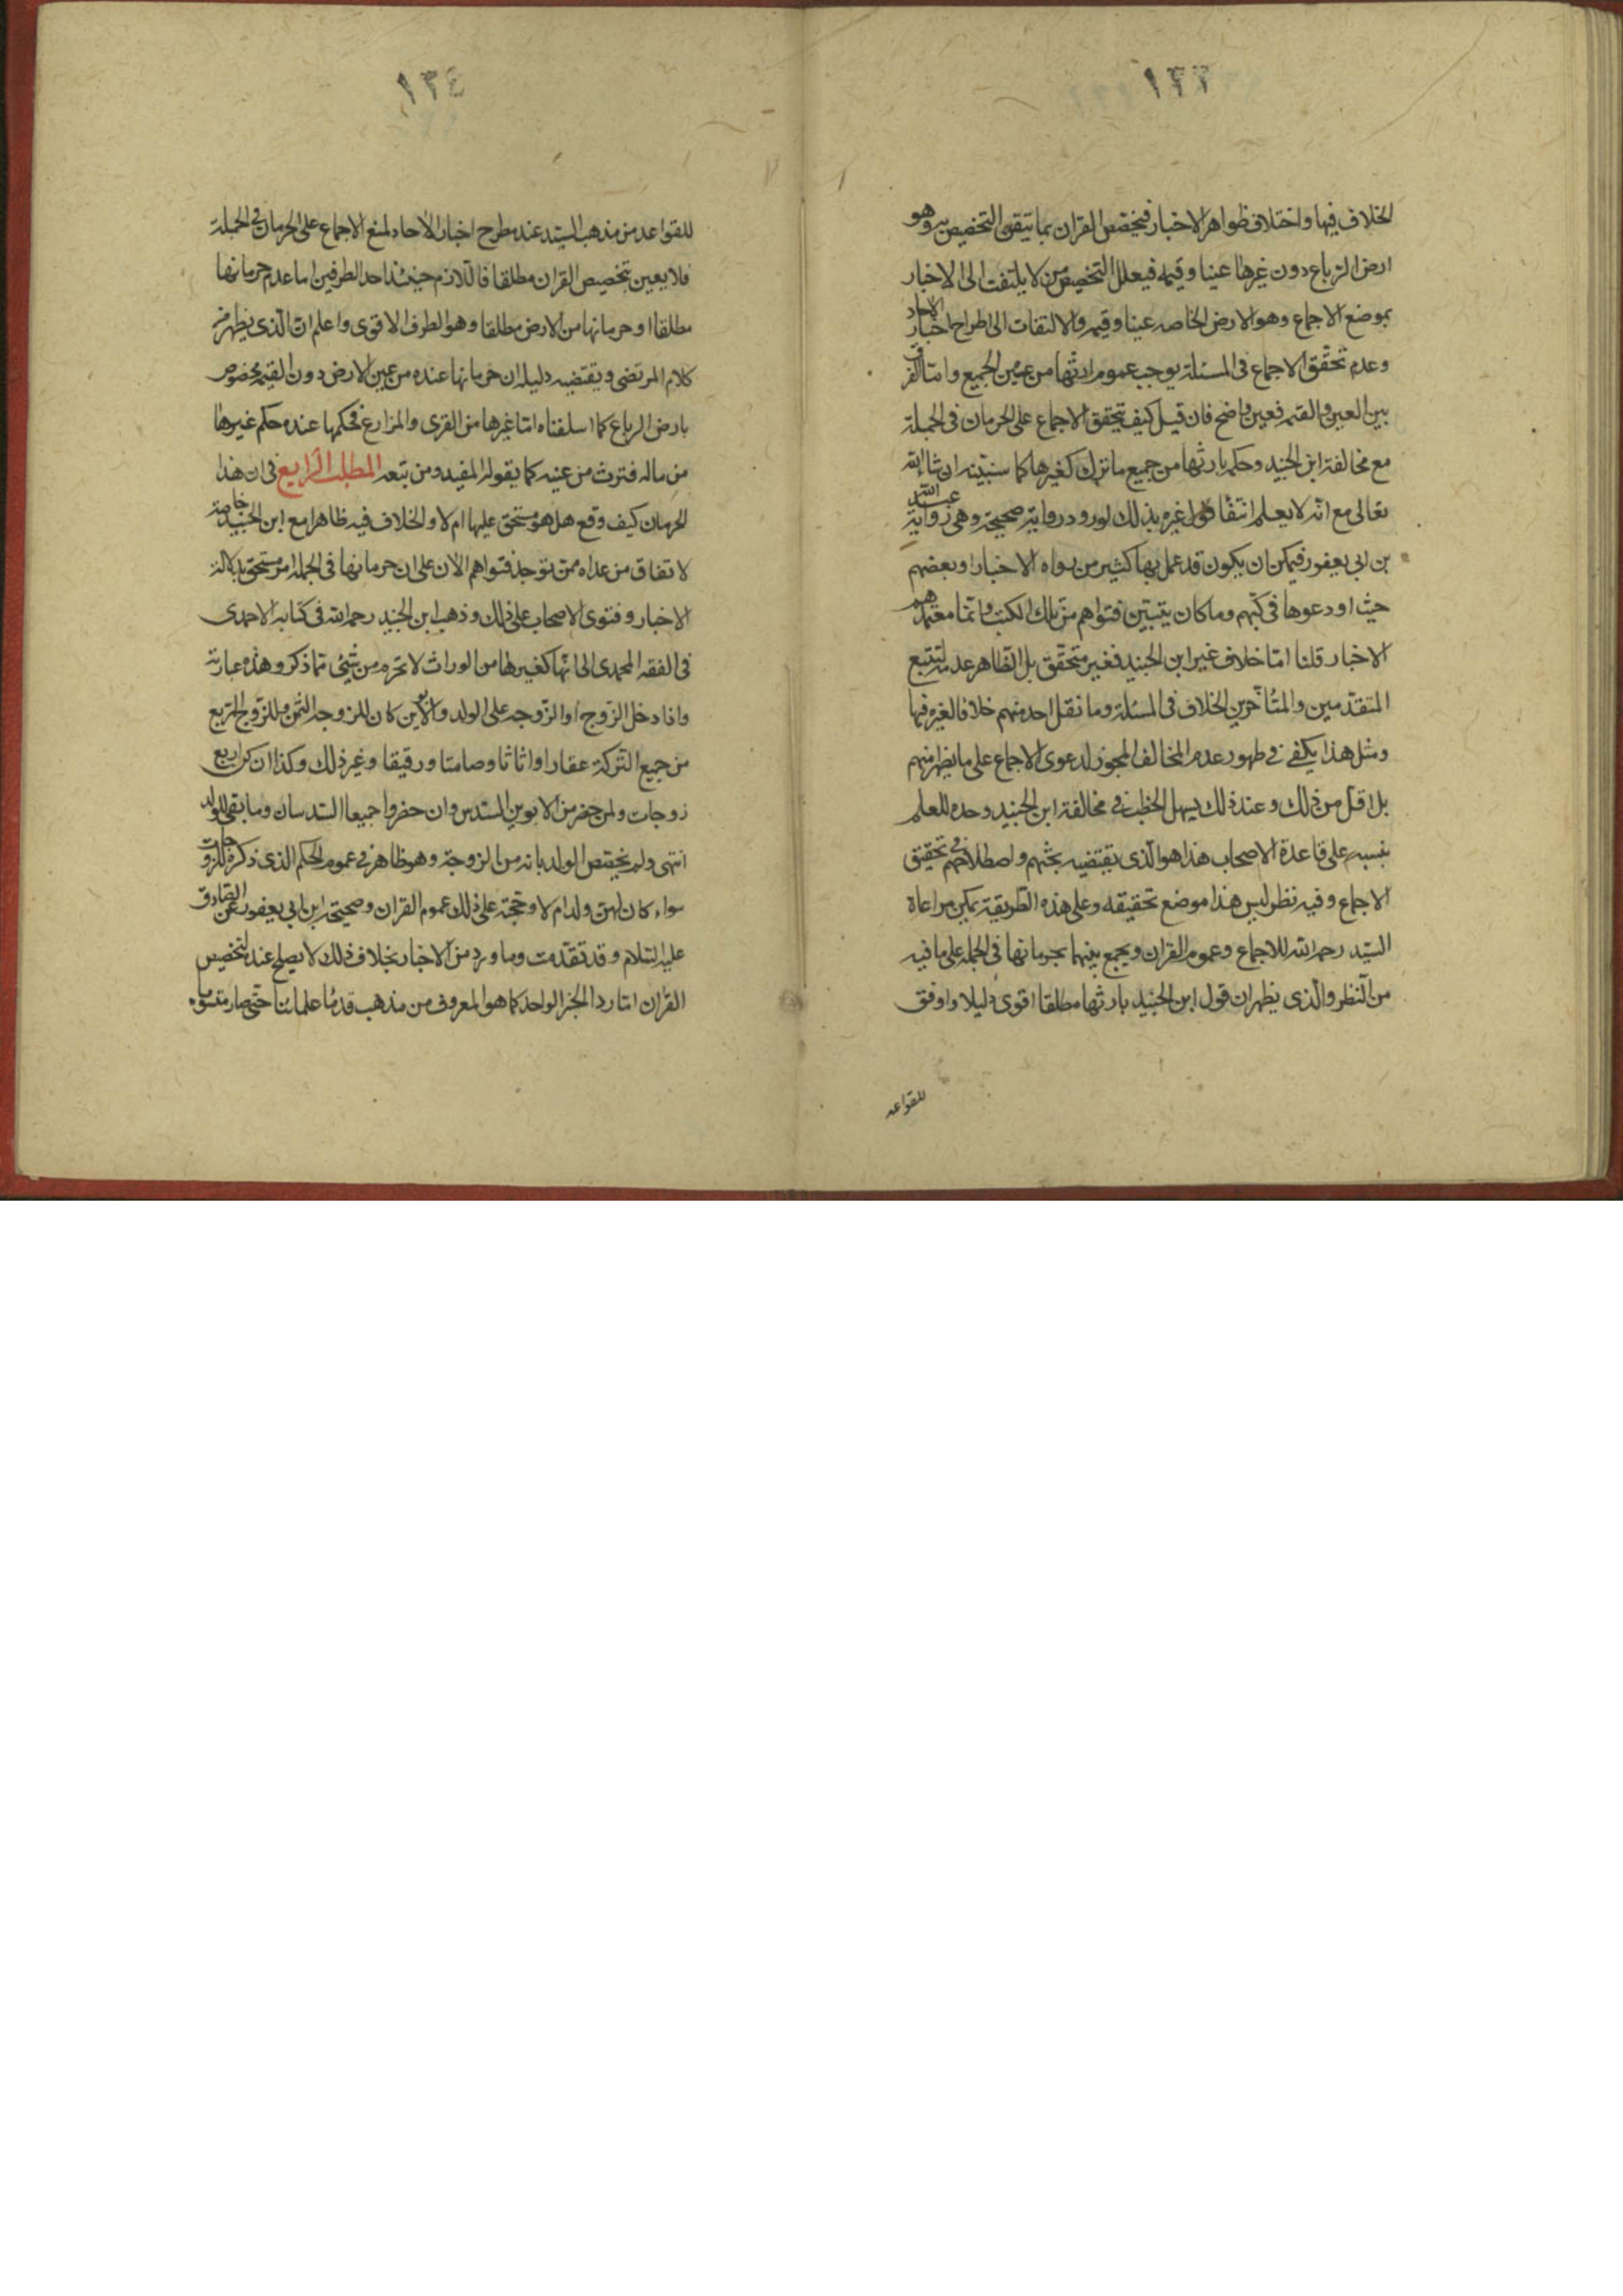 ١٣٣
الخلاف فيها واختلاف ظواهر الاخبار فيختص القران بما تيقن التخصيص به وهو
ارض الرباع دون غيرها عينا وقيمه فيعلل التخصيص من لا يلتفت الى الاخبار
بموضع الاجماع وهو الارض الخاصه عينا وقيمه والالتفات الى اطراح اخبار الاحاد
وعدم تحقق الاجماع في المسئلة يوجب عموم ارثها من عين الجميع واما الفرق
بين العين والقيمه فعين واضح فان قيل كيف يتحقق الاجماع على الحرمان في الجملة
مع مخالفة ابن الجنيد وحكمه بارثها من جميع ما ترك كغيرها كما سنبينه ان شاء الله
تعالى مع انه لا يعلم انتفا قول غيره بذلك لورود رواية صحيحة وهى رواية عبد الله
بن ابى يعفور فيمكن ان يكون قد عمل بها كثير من رواه الاخبار او بعضهم
حيث اودعوها في كتبهم وما كان يتبين فتواهم من تلك الكتب وانما معتمدهم
الاخبار قلنا اما خلاف غير ابن الجنيد فغير متحقق بل الظاهر عدمه لتتبع
المتقدمين والمتأخرين الخلاف في المسئلة وما نقل احد منهم خلافا لغيره فيها
ومثل هذا يكفى في ظهور عدم المخالف المجوز لدعوى الاجماع على ما يظهر منهم
بل اقل من ذلك وعند ذلك يسهل الخطب في مخالفة ابن الجنيد وحده للعلم
بنسبه على قاعدة الاصحاب هذا هو الذى يقتضيه بحثهم واصطلاحهم في تحقيق
الاجماع وفيه نظر ليس هذا موضع تحقيقه وعلى هذه الطريقة يمكن مراعاة
السيد رحمه الله للاجماع وعموم القران ويجمع بينهما بحرمانها في الجملة على ما فيه
من النظر والذى يظهر ان قول ابن الجنيد بارثها مطلقا اقوى دليلا واوفق
للقواعد
١٣٤
للقواعد من مذهب السيد عند مطرح اخبار الاحاد لمنع الاجماع على الحرمان في الجملة
فلا يعين تخصيص القران مطلقا فاللازم حينئذ احد الطرفين اما عدم حرمانها
مطلقا او حرمانها من الارض مطلقا وهو الطرف الاقوى واعلم ان الذى يظهر من
كلام المرتضى ويقتضيه دليله ان حرمانها عنده من عين الارض دون القيمه مخصوص
بارض الرباع كما اسلفناه اما غيرها من القرى والمزارع فحكمها عنده حكم غيرها
من ماله فترث من عينه كما يقوله المفيد ومن تبعه المطلب الرابع في ان هذا
الحرمان كيف وقع هل هو مستحق عليها ام لا والخلاف فيه ظاهرا مع ابن الجنيد خاصة
لاتفاق من عداه ممن توجد فتواهم الان على ان حرمانها في الجملة امر مستحق بدلالة
الاخبار وفتوى الاصحاب على ذلك وذهب ابن الجنيد رحمه الله في كتابه الاحمدى
في الفقه المحمدى الى انها كغيرها من الوراث لا تحرم من شئ مما ذكر وهذه عبارته
واذا دخل الزوج او الزوجه على الولد والابوين كان للزوجه الثمن وللزوج الربع
من جميع التركة عقارا او اثاثا وصامتا ورقيقا وغير ذلك وكذا ان كن اربع
زوجات ولمن حضر من الابوين السدس وان حضروا جميعا السدسان وما بقى للولد
انتهى ولم يختص الولد بانه من الزوجة وهو ظاهر في عموم الحكم الذى ذكره للزوجات
سواء كان لهن ولد ام لا وحجته على ذلك عموم القران وصحيحة ابن ابى يعفور عن الصادق
عليه السلام وقد تقدمت وما ورد من الاخبار بخلاف ذلك لا يصلح عند لتخصيص
القران اما رد الخبر الواحد كما هو المعروف من مذهب قدماء علمائنا حتى صار